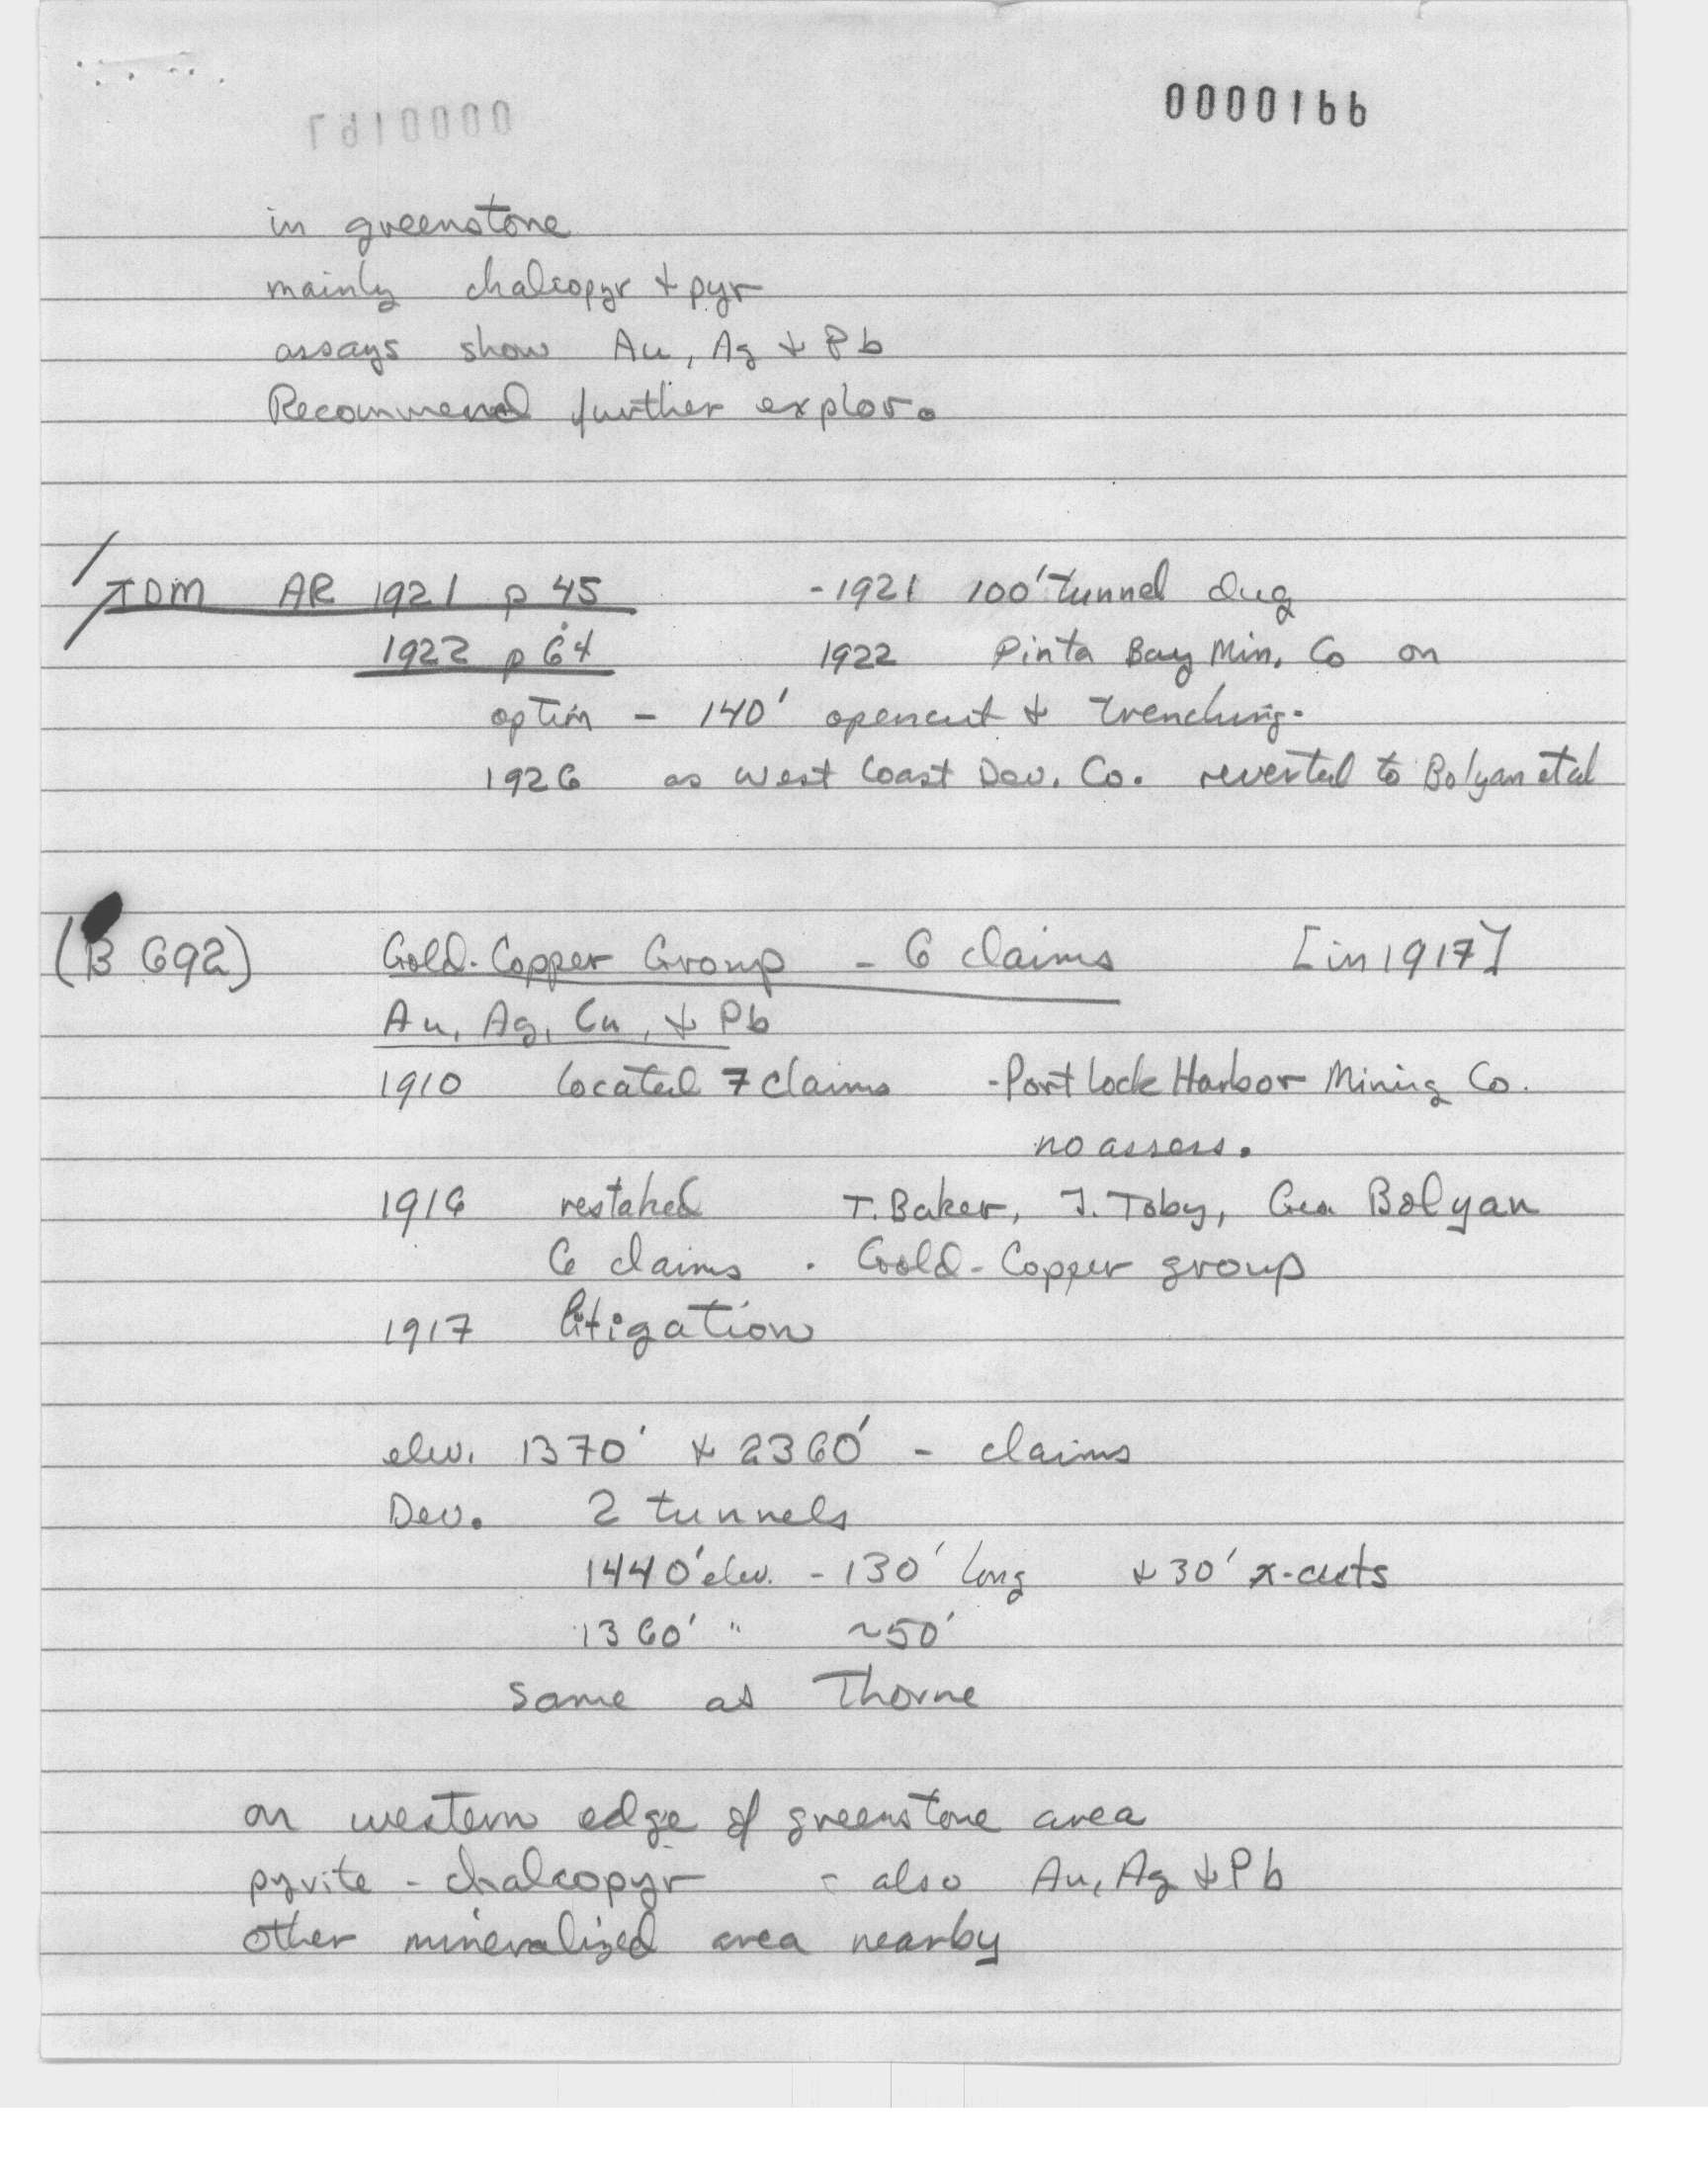 0000166
in greenstone
mainly chalcopyr & pyr
assays show Au, Ag & Pb
Recommend further explor.
TDM AR 1921 p 45 - 1921 100' tunnel dug
1922 p 64 1922 Pinta Bay Min. Co on
option - 140' opencut & trenching.
1926 as West Coast Dev. Co. reverted to Bolyan et al
(B 692) Gold-Copper Group - 6 claims [in 1917]
Au, Ag, Cu, & Pb
1910 located 7 claims - Portlock Harbor Mining Co.
no assess.
1916 restaked T. Baker, J. Toby, Geo Bolyan
6 claims . Gold-Copper group
1917 litigation
elev. 1370' & 2360' - claims
Dev. 2 tunnels
1440' elev. - 130' long & 30' x-cuts
1360' " ~50'
same as Thorne
on western edge of greenstone area
pyrite - chalcopyr - also Au, Ag & Pb
other mineralized area nearby